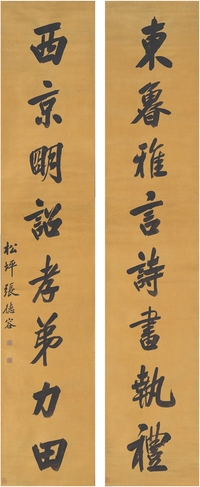 東魯雅言詩書執禮
西京明詔孝弟力田
松坪張德容